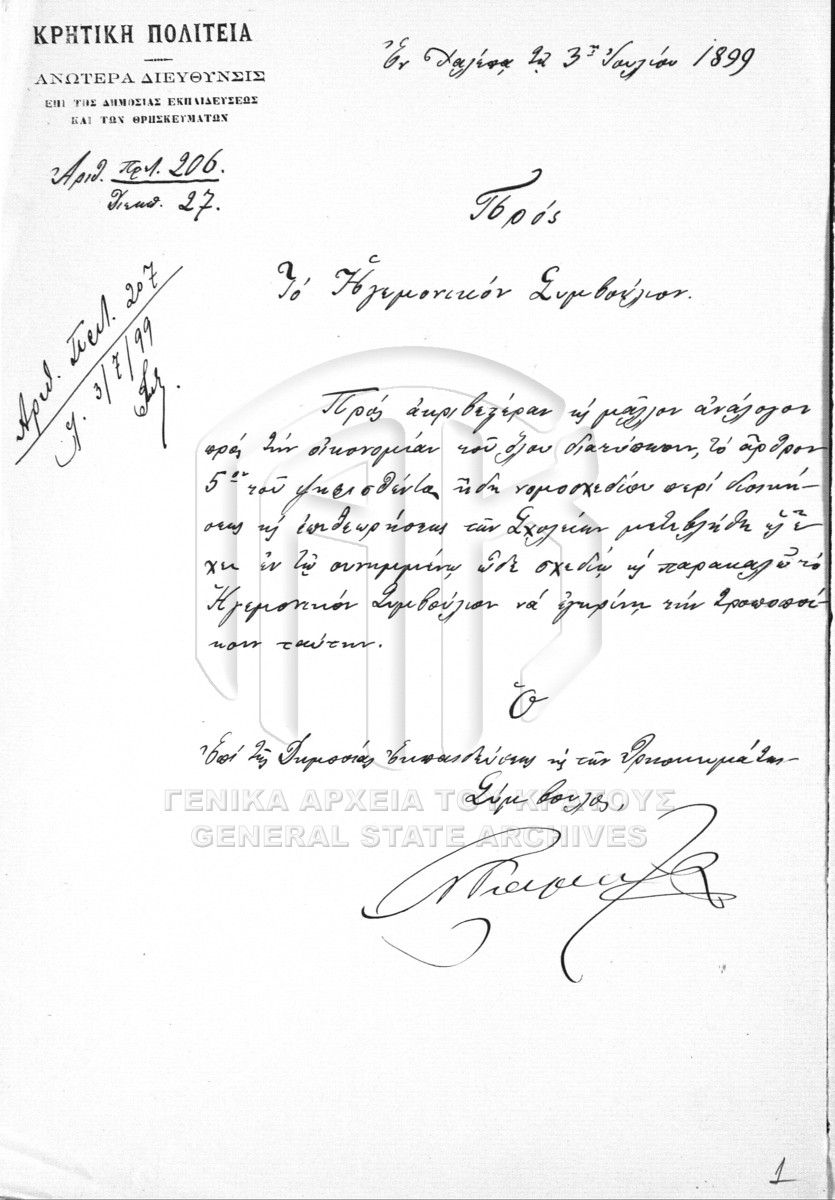 ΚΡΗΤΙΚΗ ΠΟΛΙΤΕΙΑ
ΑΝΩΤΕΡΑ ΔΙΕΥΘΥΝΣΙΣ
ΕΠΙ ΤΗΣ ΔΗΜΟΣΙΑΣ ΕΚΠΑΙΔΕΥΣΕΩΣ
ΚΑΙ ΤΩΝ ΘΡΗΣΚΕΥΜΑΤΩΝ
Ἐν Χαλέπᾳ τῇ 3ῃ Ἰουλίου 1899
Ἀριθ. Πρωτ. 206.
Διεκπ. 27.
Ἀριθ. Πρωτ. 207
3/7/99
Πρός
Τό Ἡγεμονικόν Συμβούλιον.
Πρός ἀκριβεστέραν κ μᾶλλον ἀνάλογον
πρός τήν οἰκονομίαν τοῦ ὅλου διατύπωσιν, τό ἄρθρον
5ον τοῦ ψηφισθέντος ἤδη νομοσχεδίου περί διοική-
σεως κ ἐπιθεωρήσεως τῶν Σχολείων μετεβλήθη ὡς ἔ-
χει ἐν τῷ συνημμένῳ ὧδε σχεδίῳ κ παρακαλῶ τό
Ἡγεμονικόν Συμβούλιον νά ἐγκρίνῃ τήν τροποποί-
ησιν ταύτην.
Ὁ
Ἐπί τῆς Δημοσίας Ἐκπαιδεύσεως κ τῶν Θρησκευμάτων
Σύμβουλος,
ΓΕΝΙΚΑ ΑΡΧΕΙΑ ΤΟΥ ΚΡΑΤΟΥΣ
GENERAL STATE ARCHIVES
1